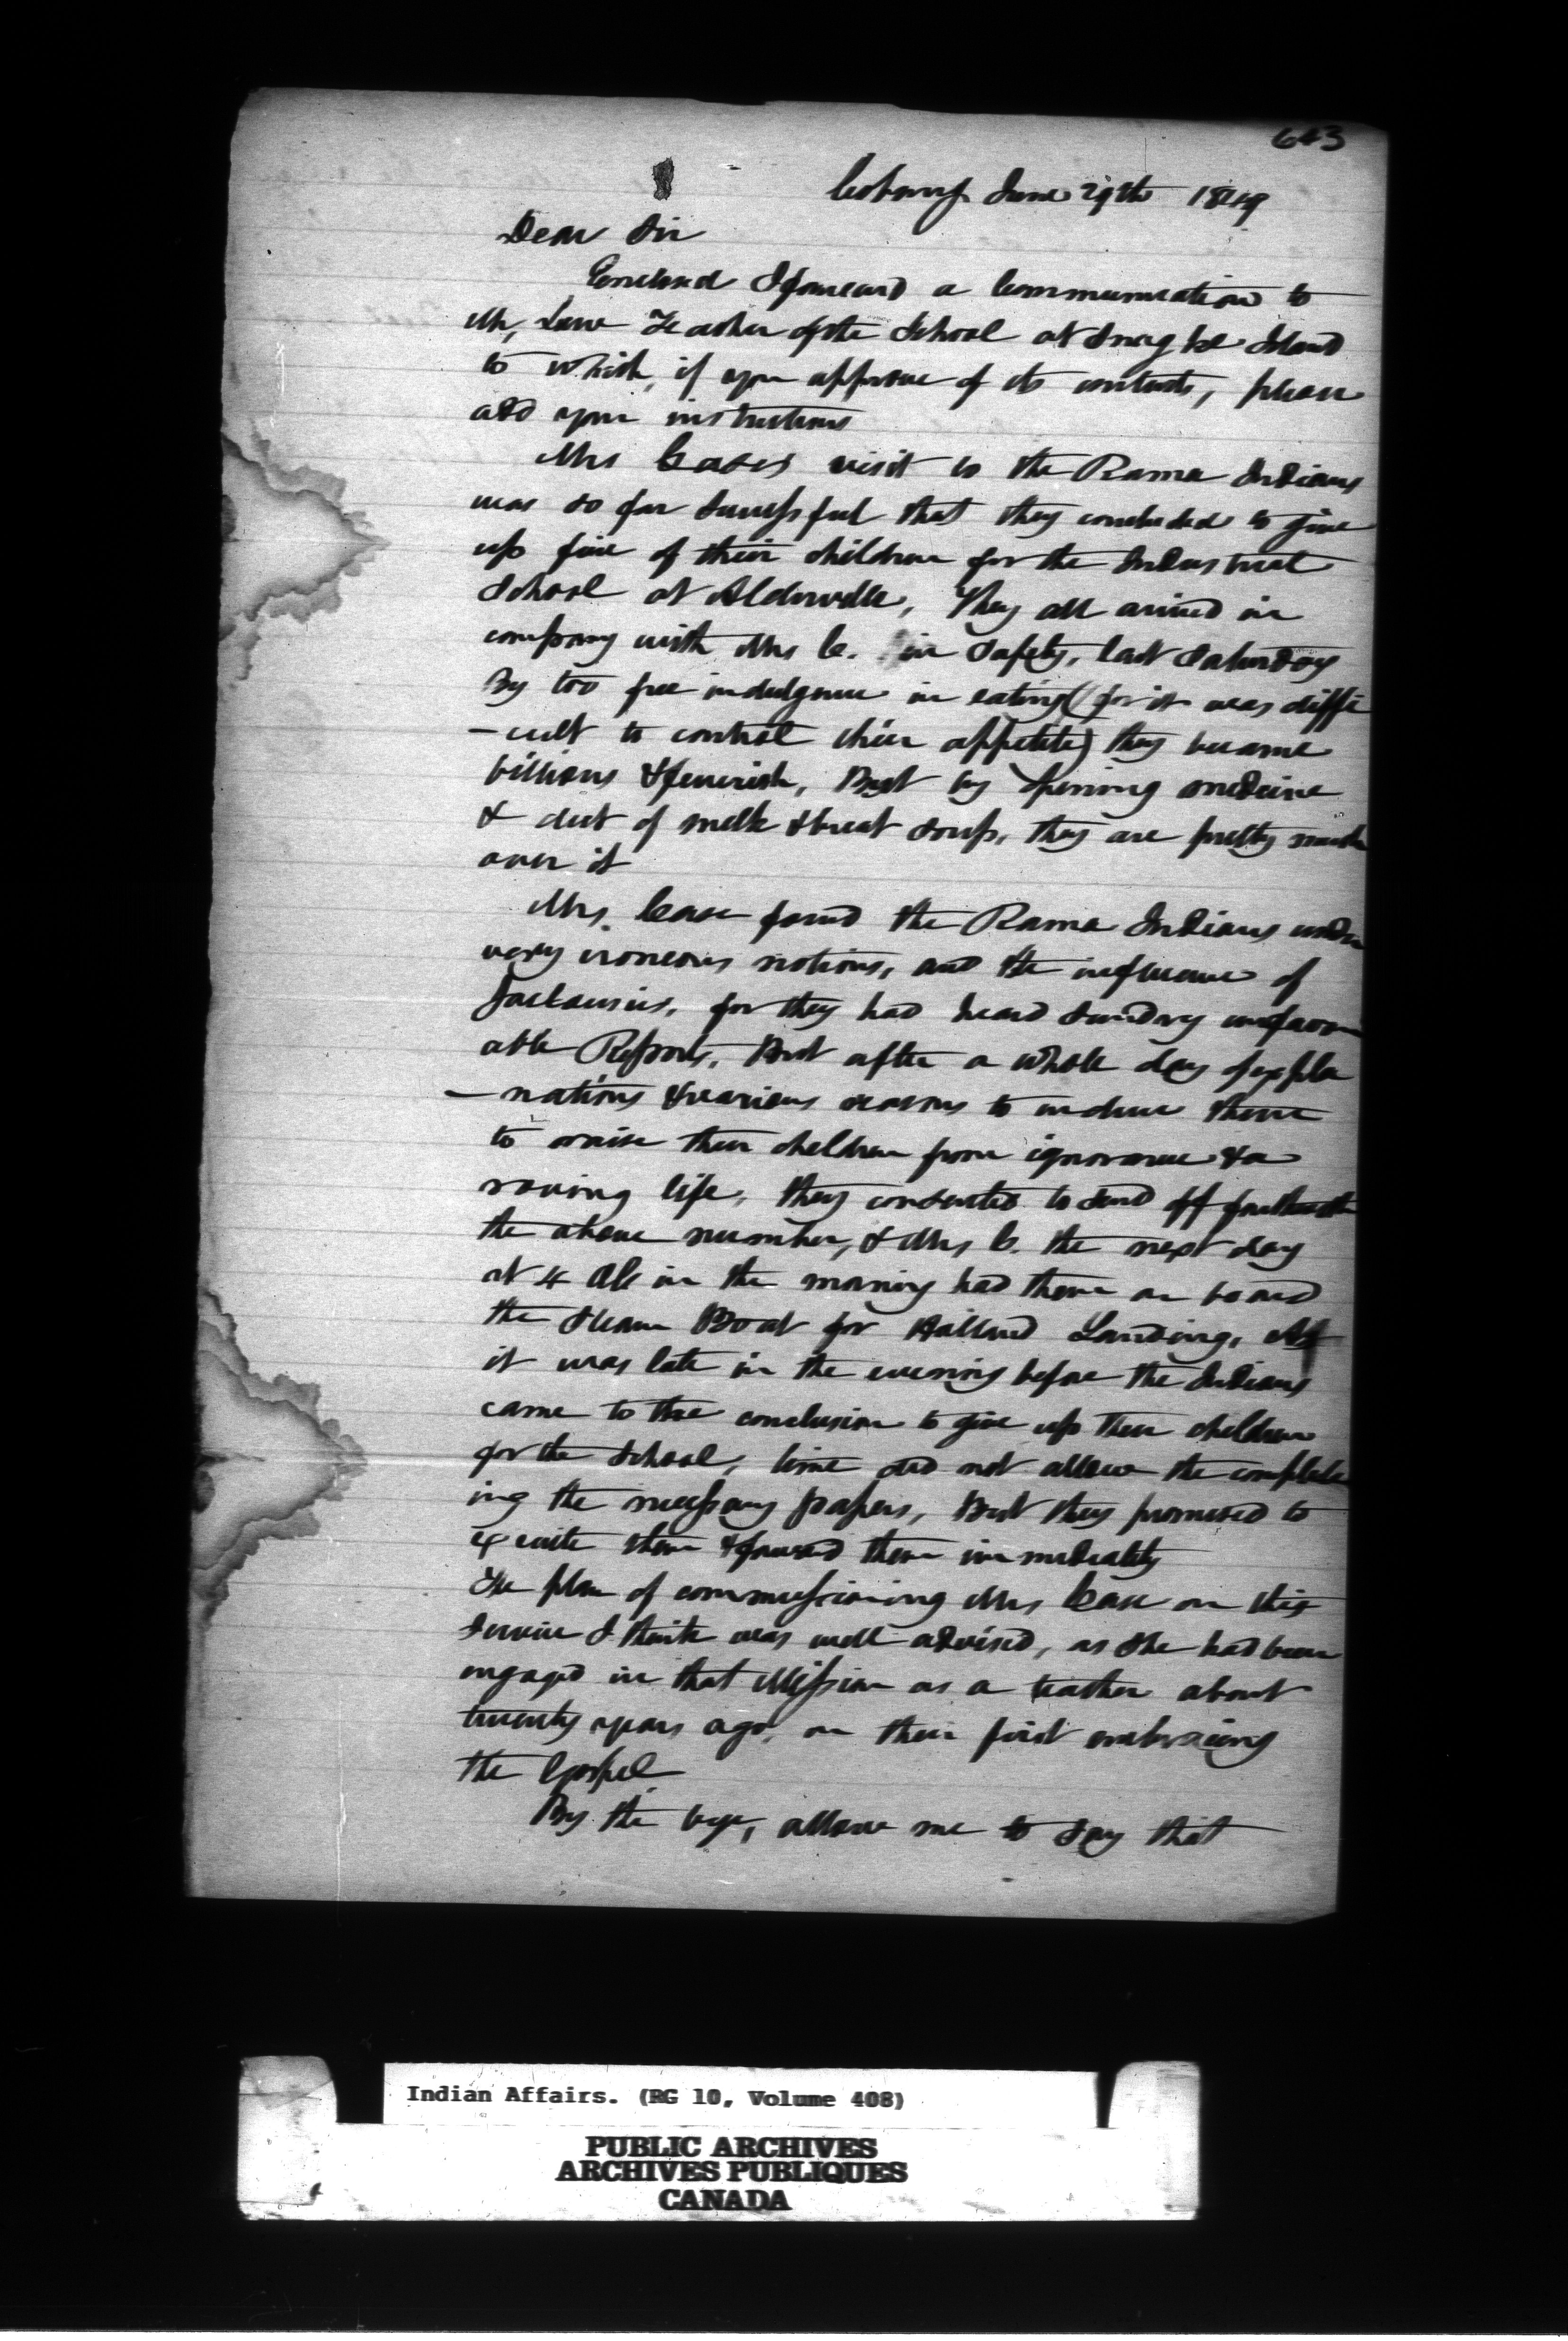 643
Cobourg June 29th 1849
Dear Sir
Enclosed I forward a Communication to
Mr, Law Teacher of the School at Snug Island
to which, if you approve of its contents, please
add your instructions
Mrs Cases visit to the Rama Indians
was so far successful that they concluded to give
up five of their children for the Industrial
School at Alderville, They all arrived in
company with Mrs C. in safety, last Saturday
By too free indulgence in eating (for it was diffi
-cult to control their appetite) they became
billious & feverish, But by opening medicine
& diet of milk & breat soup, they are pretty much
over it
Mrs. Case found the Rama Indians under
very ironeous notions, and the influence of
Jaelousies, for they had heard sundry unfavor
able Reports, But after a whole day of expla
-nations & various reasons to induce them
to raise their children from ignorance & a
roving life, they consented to send off
the above number, & Mrs C. the next day
at 4 in the morning had them on board
the Steam Boat for Holland Landing, As
it was late in the evening before the Indians
came to the conclusion to give up their children
for the School, time did not allow the complete
ing the necessary papers, But they promised to
excute them & forward them immediately
The plan of commissioning Mrs Case on this
service I think was well advised, as she had been
engaged in that Mission as a teacher about
twenty years ago, on their first embracing
the Gospel
By the bye, allow me to say that
Indian Affairs. (RG 10, Volume 408)
PUBLIC ARCHIVES
ARCHIVES PUBLIQUES
CANADA